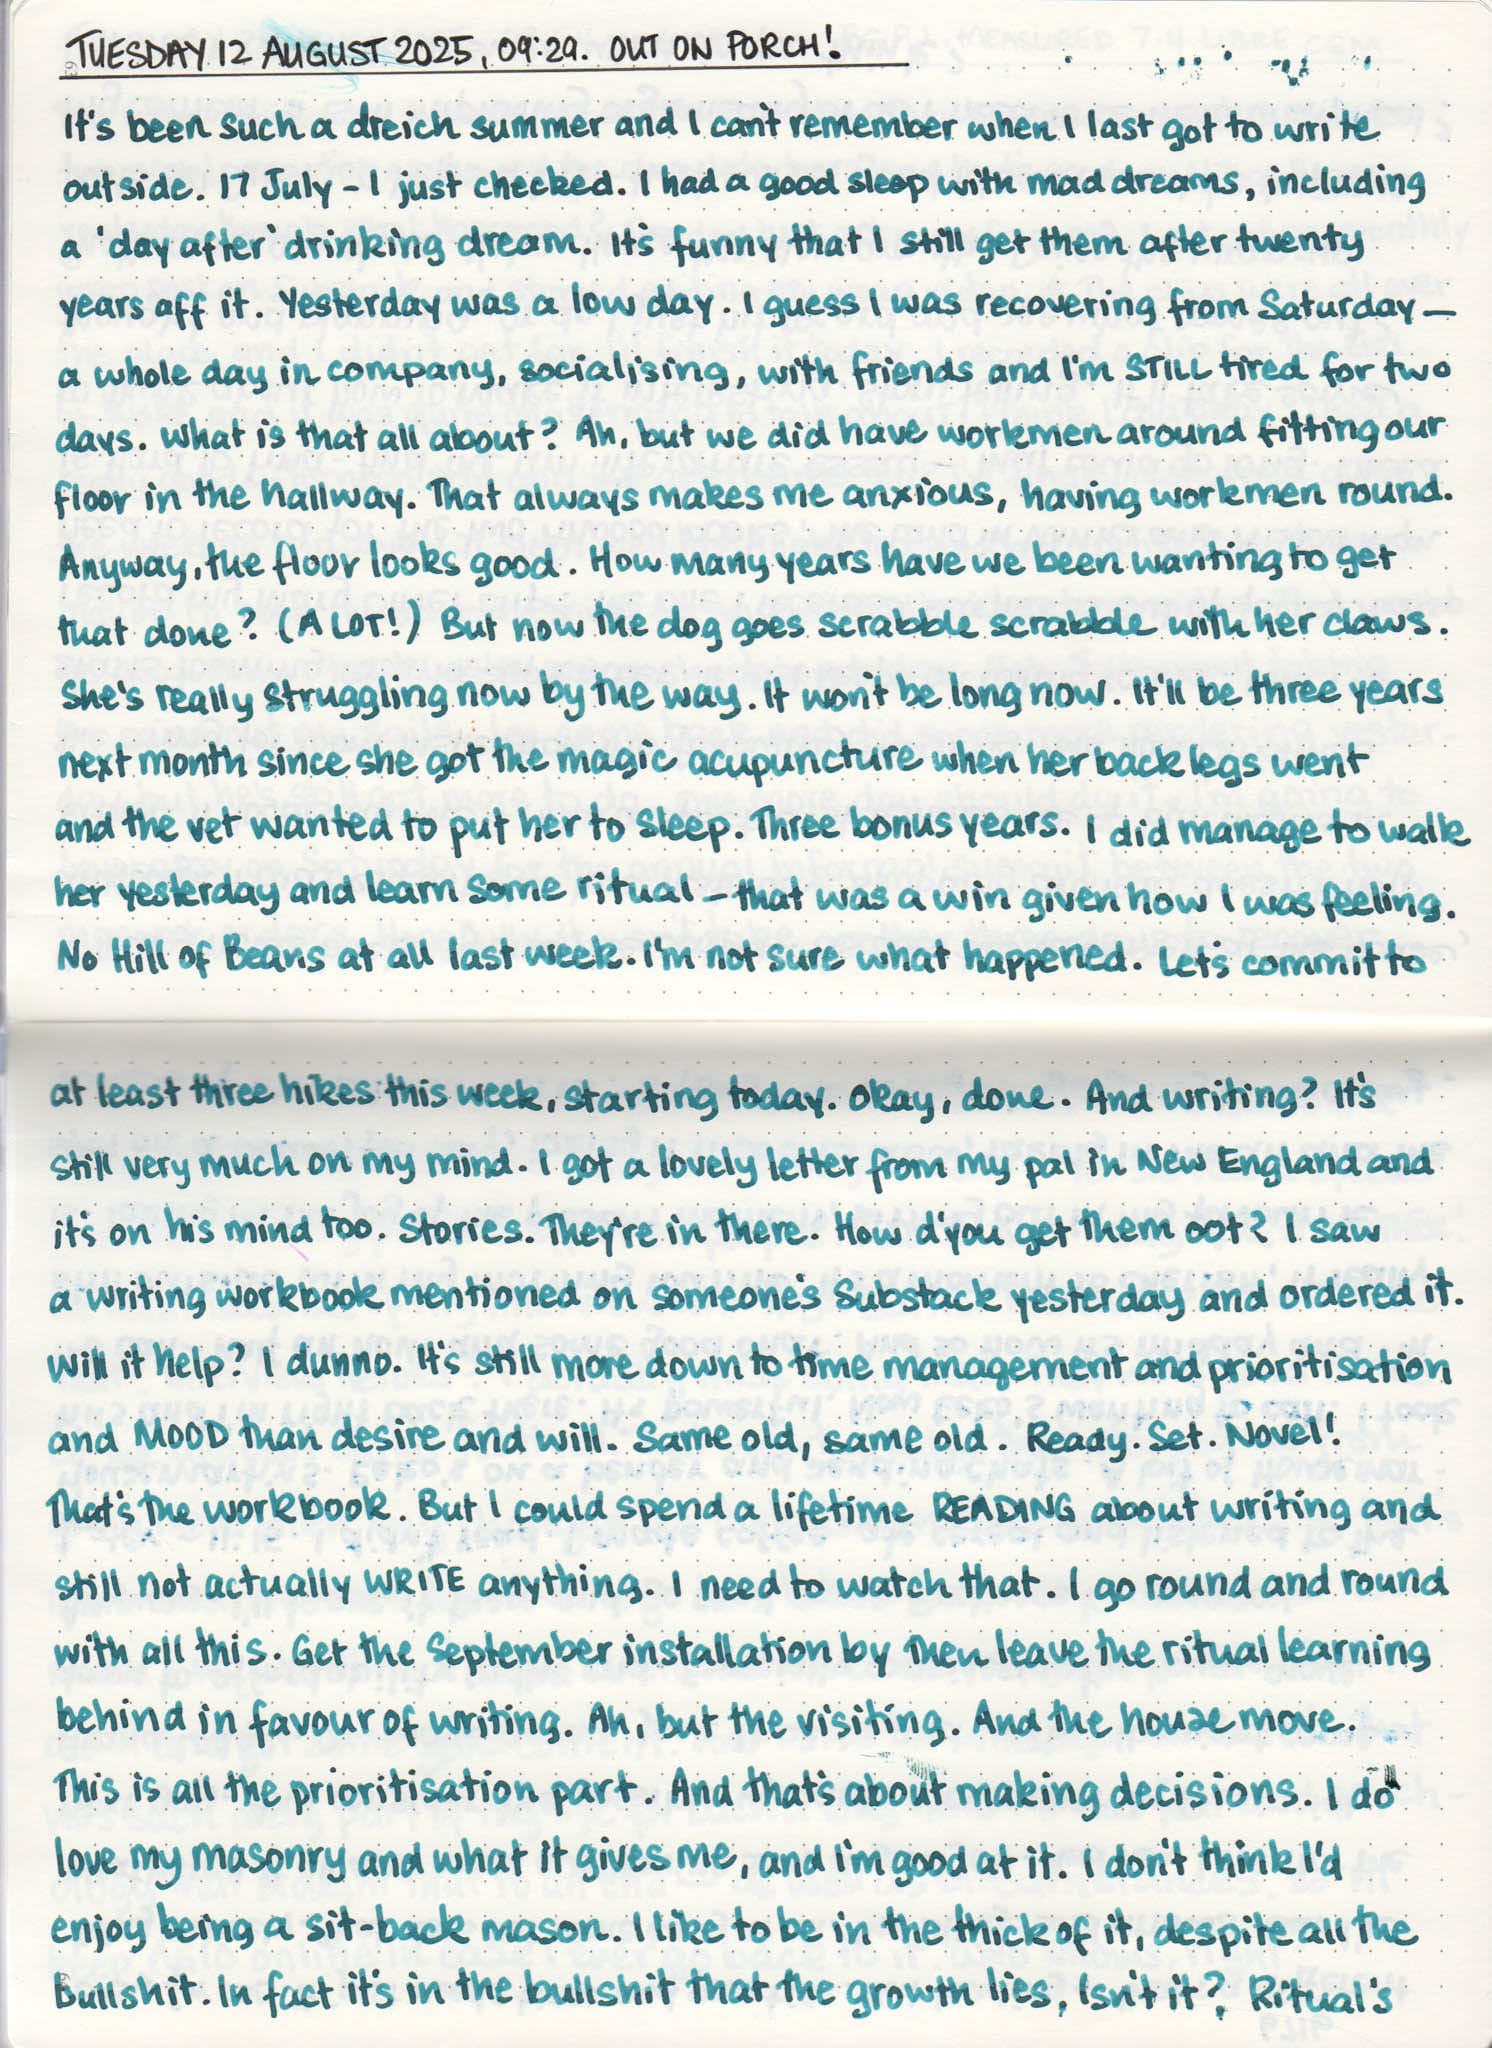 TUESDAY 12 AUGUST 2025, 09:29. OUT ON PORCH!
It's been such a dreich summer and I can't remember when I last got to write
outside. 17 July – I just checked. I had a good sleep with mad dreams, including
a 'day after' drinking dream. It's funny that I still get them after twenty
years aff it. Yesterday was a low day. I guess I was recovering from Saturday –
a whole day in company, socialising, with friends and I'm STILL tired for two
days. What is that all about? Ah, but we did have workmen around fitting our
floor in the hallway. That always makes me anxious, having workmen round.
Anyway, the floor looks good. How many years have we been wanting to get
that done? (A LOT!) But now the dog goes scrabble scrabble with her claws.
She's really struggling now by the way. It won't be long now. It'll be three years
next month since she got the magic acupuncture when her back legs went
and the vet wanted to put her to sleep. Three bonus years. I did manage to walk
her yesterday and learn some ritual – that was a win given how I was feeling.
No Hill of Beans at all last week. I'm not sure what happened. Let's commit to
at least three hikes this week, starting today. Okay, done. And writing? It's
still very much on my mind. I got a lovely letter from my pal in New England and
it's on his mind too. Stories. They're in there. How d'you get them oot? I saw
a writing workbook mentioned on someone's Substack yesterday and ordered it.
Will it help? I dunno. It's still more down to time management and prioritisation
and MOOD than desire and will. Same old, same old. Ready. Set. Novel!
That's the workbook. But I could spend a lifetime READING about writing and
still not actually WRITE anything. I need to watch that. I go round and round
with all this. Get the September installation by then leave the ritual learning
behind in favour of writing. Ah, but the visiting. And the house move.
This is all the prioritisation part. And that's about making decisions. I do
love my masonry and what it gives me, and I'm good at it. I don't think I'd
enjoy being a sit-back mason. I like to be in the thick of it, despite all the
bullshit. In fact it's in the bullshit that the growth lies, isn't it? Ritual's